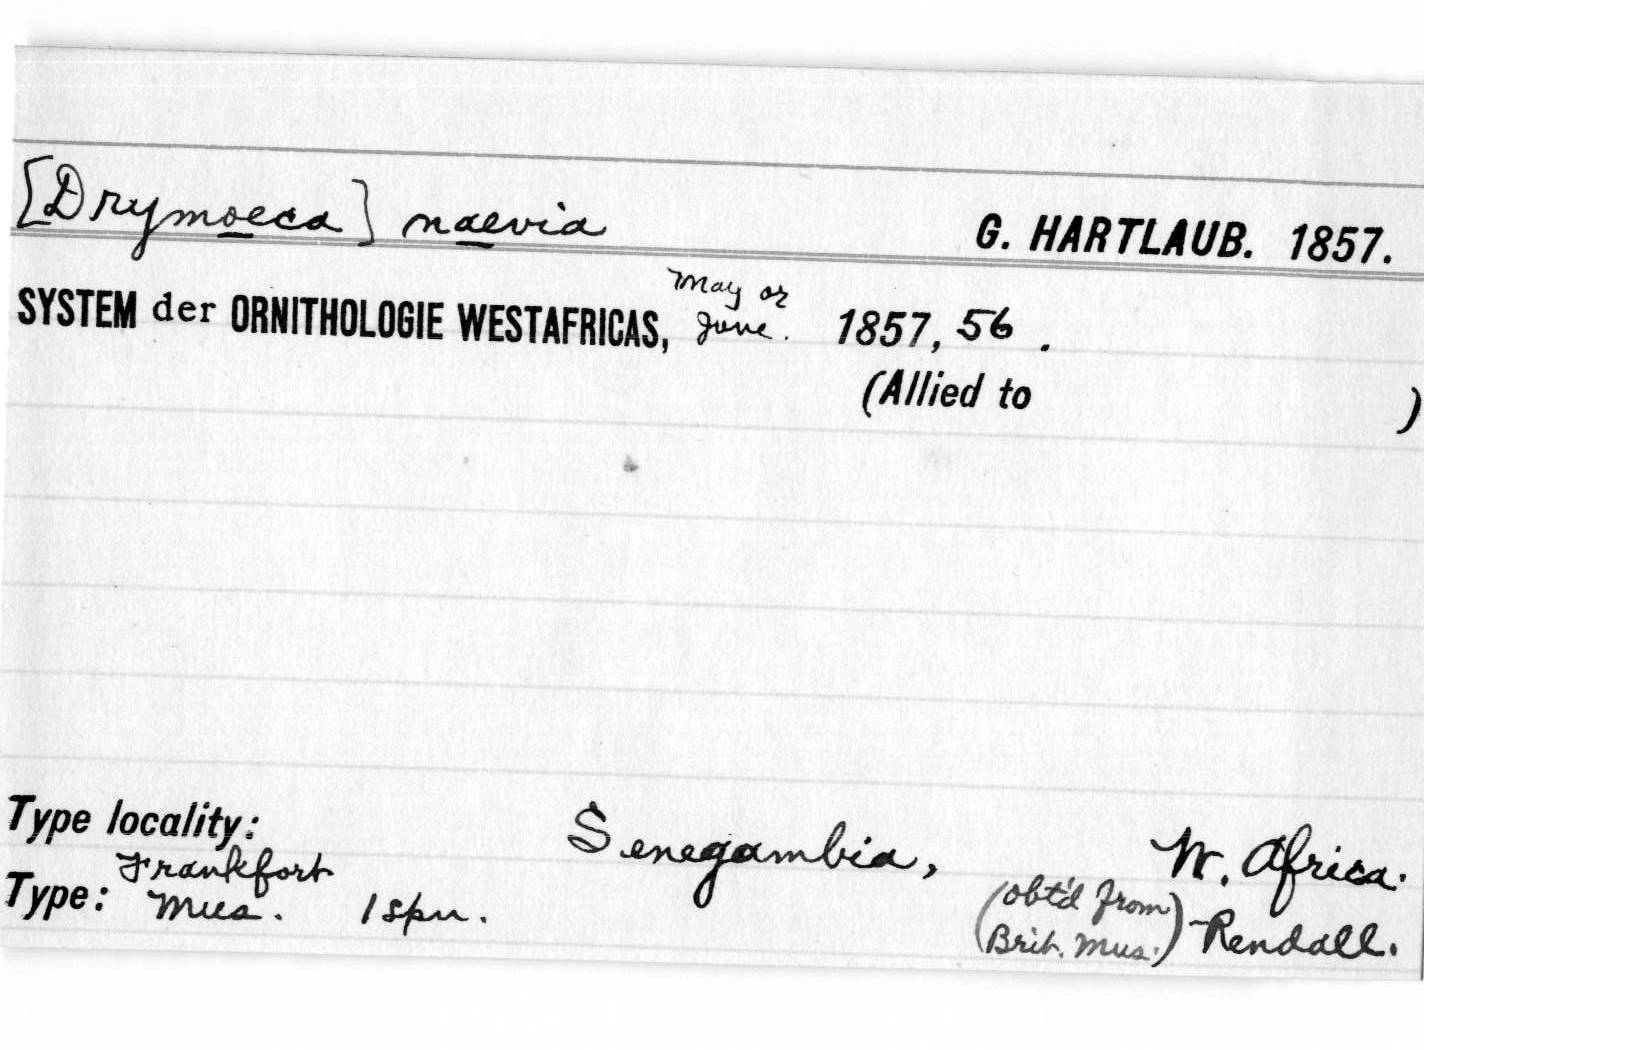 [Drymoeca] naevia G. HARTLAUB. 1857.
SYSTEM der ORNITHOLOGIE WESTAFRICAS, May or June. 1857, 56.
(Allied to )
Type locality: Senegambia, W. Africa.
Type: Frankfort Mus. 1 spn. (obt'd from Brit. Mus.) - Rendall.